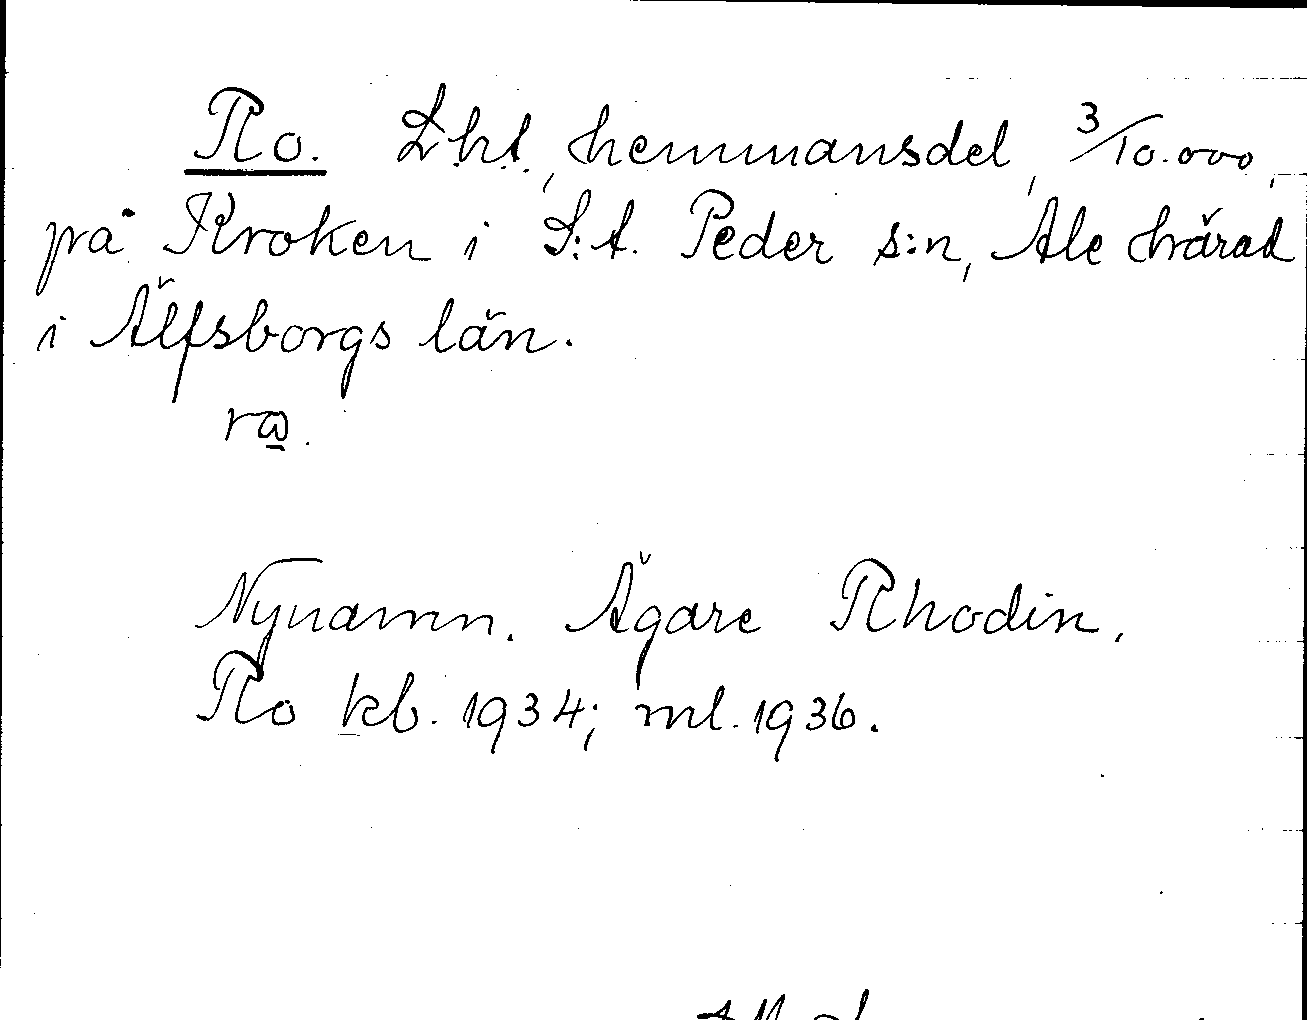 Ro. Lht., hemmansdel, 3/10.000,
på Kroken i S:t. Peder s:n, Ale härad
i Älfsborgs län.
Nynamn. Ägare Rhodin.
Ro kb. 1934; ml. 1936.